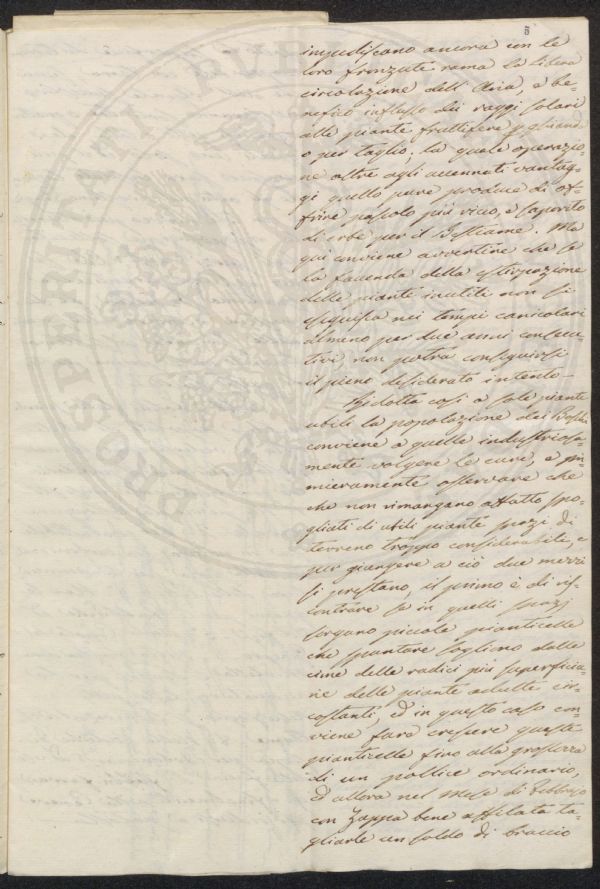 5
PROSPERITATI PUBLICAE
ingiudiscano ancora con le
loro fronzute rama la libera
circolazione dell' Aria, e be-
nefico influsso dei raggi solari
alle piante fruttifere
o per taglio; la quale operazio-
ne oltre agli accennati vantag-
gi quello pure produce di of-
frire pascolo più vivo, e saporito
di erbe per il Bestiame. Ma
qui conviene avvertire che se
la faccenda della estirpazione
delle piante inutili non si
eseguisca nei tempi canicolari
almeno per due anni consecu-
tivi non potrà conseguirsi
il pieno desiderato intento -
Ridotta così a sole piante
utili la popolazione dei Boschi
conviene a quelle industriosa-
mente volgere le cure, e pri-
mieramente osservare che
che non rimangano affatto spo-
gliati di utili piante spazi di
terreno troppo considerabili, e
per giungere a ciò due mezzi
si prestano, il primo è di ris-
contrare se in quelli spazj
sorgano piccole pianticelle
che spuntare sogliono dalle
cime delle radici più superficia-
rie delle piante adulte cir-
costanti, ed in questo caso con-
viene fare crescere queste
pianticelle fino alla grossezza
di un pollice ordinario,
ed allora nel Mese di Febbrajo
con Zappa bene affilata ta-
gliarle un soldo di braccio